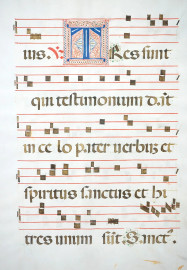 uis. ℣ Tres sunt
qui testimonium dāt
in ce lo pater uerbū et
spiritus sanctus et hi
tres unum sūt. Sanctꝰ.